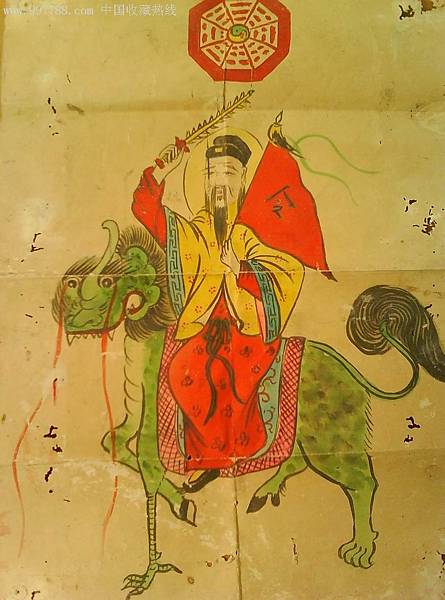 www.997788.com 中国收藏热线